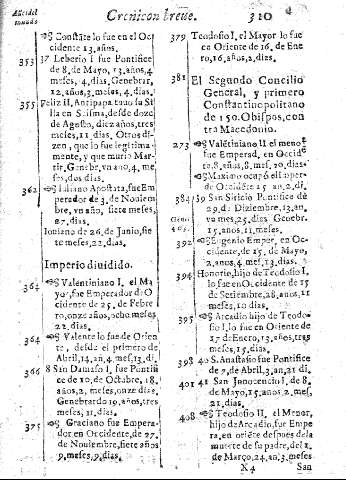 Añ. del mundo.
Cronicon breue.
310
Constāte lo fue en el Occidente 13. años.
353
37 Leberio I fue Pontifice
de 8. de Mayo, 13. años, 4
meses, 4. dias, Genebrar.
12, años, 3. meses, 4. dias.
355
Feliz II. Antipapa tuuo su Silla
en Scisma, desde doze
de Agosto, diez años, tres
meses, 11, dias. Otros dizen,
que lo fue legitimamente,
y que murio Martir.
Genebr. vn año, 4, meses,
dos dias.
362
Iuliano Apostata, fue Emperador
de 3. de Nouiembre,
vn año, siete meses,
27. dias.
Iouiano de 26. de Junio, siete
meses, 22. dias.
Imperio diuidido.
364
Valentiniano I. el Mayo
fue Emperador de Occidente
de 25. de Febrero,
onze años, ocho meses
22. dias.
364
Valente lo fue de Oriente,
desde el primero de
Abril, 14, an, 4. mes, 13. di.
366
8 San Damaso I. fue Pontifice
de 10, de Octubre, 18.
años, 2, meses, onze dias.
Genebrardo 19, años, tres
meses, 11. dias.
375
Graciano fue Emperador
en Occidente, de 27. de
Nouiembre, siete años
9, meses, 9. dias.
379
Teodosio I, el Mayor lo fue
en Oriente de 16. de Enero,
16, años, 2, dias.
381
El Segundo Concilio
General, y primero
Constantinopolitano
de 150. Obispos, contra
Macedonio.
273
Valētiniano II. el menor
fue Emperad. en Occidēte,
8. años, 8. mes. 20. dias.
Maximo
de Occidēte
384
39 San Siricio Pontifice de
29, di: Diziembre, 13, an,
Genebr.
15, años, 11, meses.
392
Eugenio Emper. en Occidente,
de 15. de Mayo,
2. años, 4, mes, 13, dias.
394
Honorio, hijo de Teodosio I,
lo fue en Occidente de 15
de Setiembre, 28, años, 11
meses, 10 dias.
395
Arcadio hijo de Teodosio
I, lo fue en Oriente de
17 de Enero, 13, años, tres
meses, 15. dias.
398
40 S. Anastasio fue Pontifice
de 7, de Abril, 3, an, 21 di.
401
41 San Innocencio I, de 8,
de Mayo, 15, años, 2, mes,
21, dias.
408
Teodosio II, el Menor,
hijo de Arcadio, fue Empera,
en oriēte despues de la
muerte de su padre, de 1.
de Março, 24, an, 3, meses
X4
San